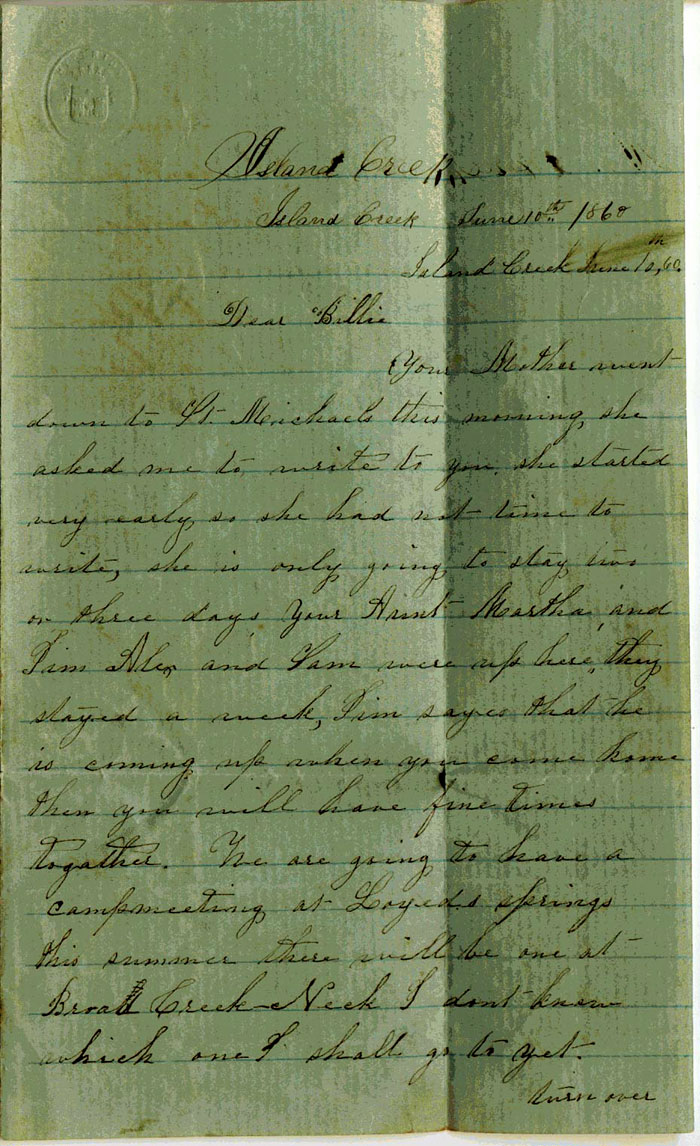 Island Creek
Island Creek June 10th 1860
Island Creek June 10th, 60.
Dear Billie
Your Mother went
down to St. Michaels this morning, she
asked me to write to you, she started
very early, so she had not time to
write, she is only going to stay two
or three days Your Aunt Martha, and
Tim Alex and Sam were up here, they
stayed a week, Tim sayes that he
is coming up when you come home
then you will have fine times
togather. We are going to have a
campmeeting at Loyeds springs
this summer there will be one at
Broad Creek Neck I dont know
which one I shall go to yet.
turn over